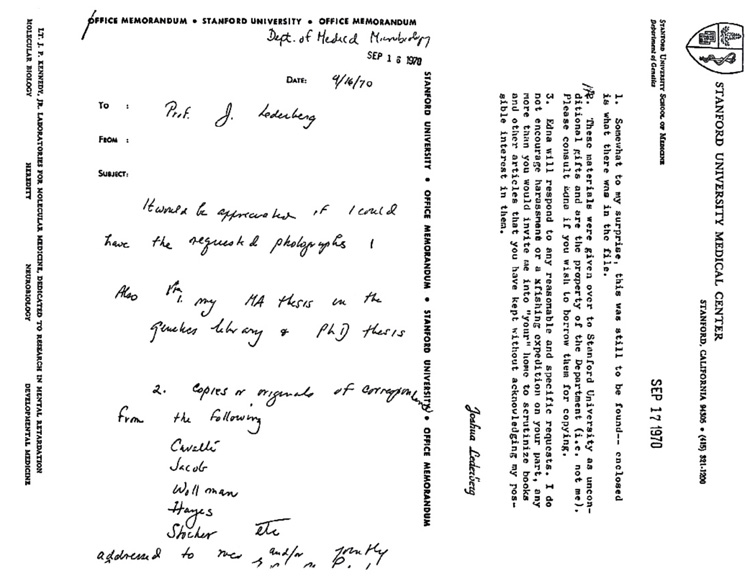 OFFICE MEMORANDUM • STANFORD UNIVERSITY • OFFICE MEMORANDUM
Dept. of Medical Microbiology
SEP 16 1970
DATE: 9/16/70
TO : Prof. J. Lederberg
FROM :
SUBJECT:
It would be appreciated if I could
have the requested photographs
Also my MA thesis in the
Genetics library & PhD thesis
2. Copies or originals of correspondence
from the following
Cavalli
Jacob
Wollman
Hayes
Stocker etc
addressed to me and/or jointly
STANFORD UNIVERSITY • OFFICE MEMORANDUM • STANFORD UNIVERSITY • OFFICE MEMORANDUM
LT. J. P. KENNEDY, JR. LABORATORIES FOR MOLECULAR MEDICINE, DEDICATED TO RESEARCH IN MENTAL RETARDATION
MOLECULAR BIOLOGY HEREDITY NEUROBIOLOGY DEVELOPMENTAL MEDICINE
STANFORD UNIVERSITY MEDICAL CENTER
STANFORD, CALIFORNIA 94305 • (415) 321-1200
STANFORD UNIVERSITY SCHOOL OF MEDICINE
Department of Genetics
SEP 17 1970
1. Somewhat to my surprise, this was still to be found-- enclosed
is what there was in the file.
2. These materials were given over to Stanford University as uncon-
ditional gifts and are the property of the Department (i.e. not me).
Please consult if you wish to borrow them for copying.
3. Edna will respond to any reasonable and specific requests. I do
not encourage harassment or a xfishing expedition on your part, any
more than you would invite me into "your" home to scrutinize books
and other articles that you have kept without acknowledging my pos-
sible interest in them.
Joshua Lederberg